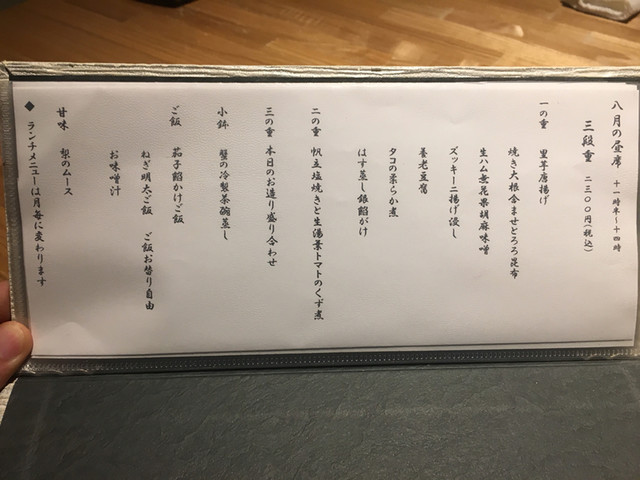 八月の昼席 十一時半〜十四時
三段重 二三〇〇円(税込)
一の重 里芋唐揚げ
焼き大根含ませとろろ昆布
生ハム無花果胡麻味噌
ズッキーニ揚げ浸し
養老豆腐
タコの柔らか煮
はす蒸し銀餡がけ
二の重 帆立塩焼きと生湯葉トマトのくず煮
三の重 本日のお造り盛り合わせ
小鉢 蟹の冷製茶碗蒸し
ご飯 茄子餡かけご飯
ねぎ明太ご飯 ご飯お替り自由
お味噌汁
甘味 梨のムース
◆ ランチメニューは月毎に変わります